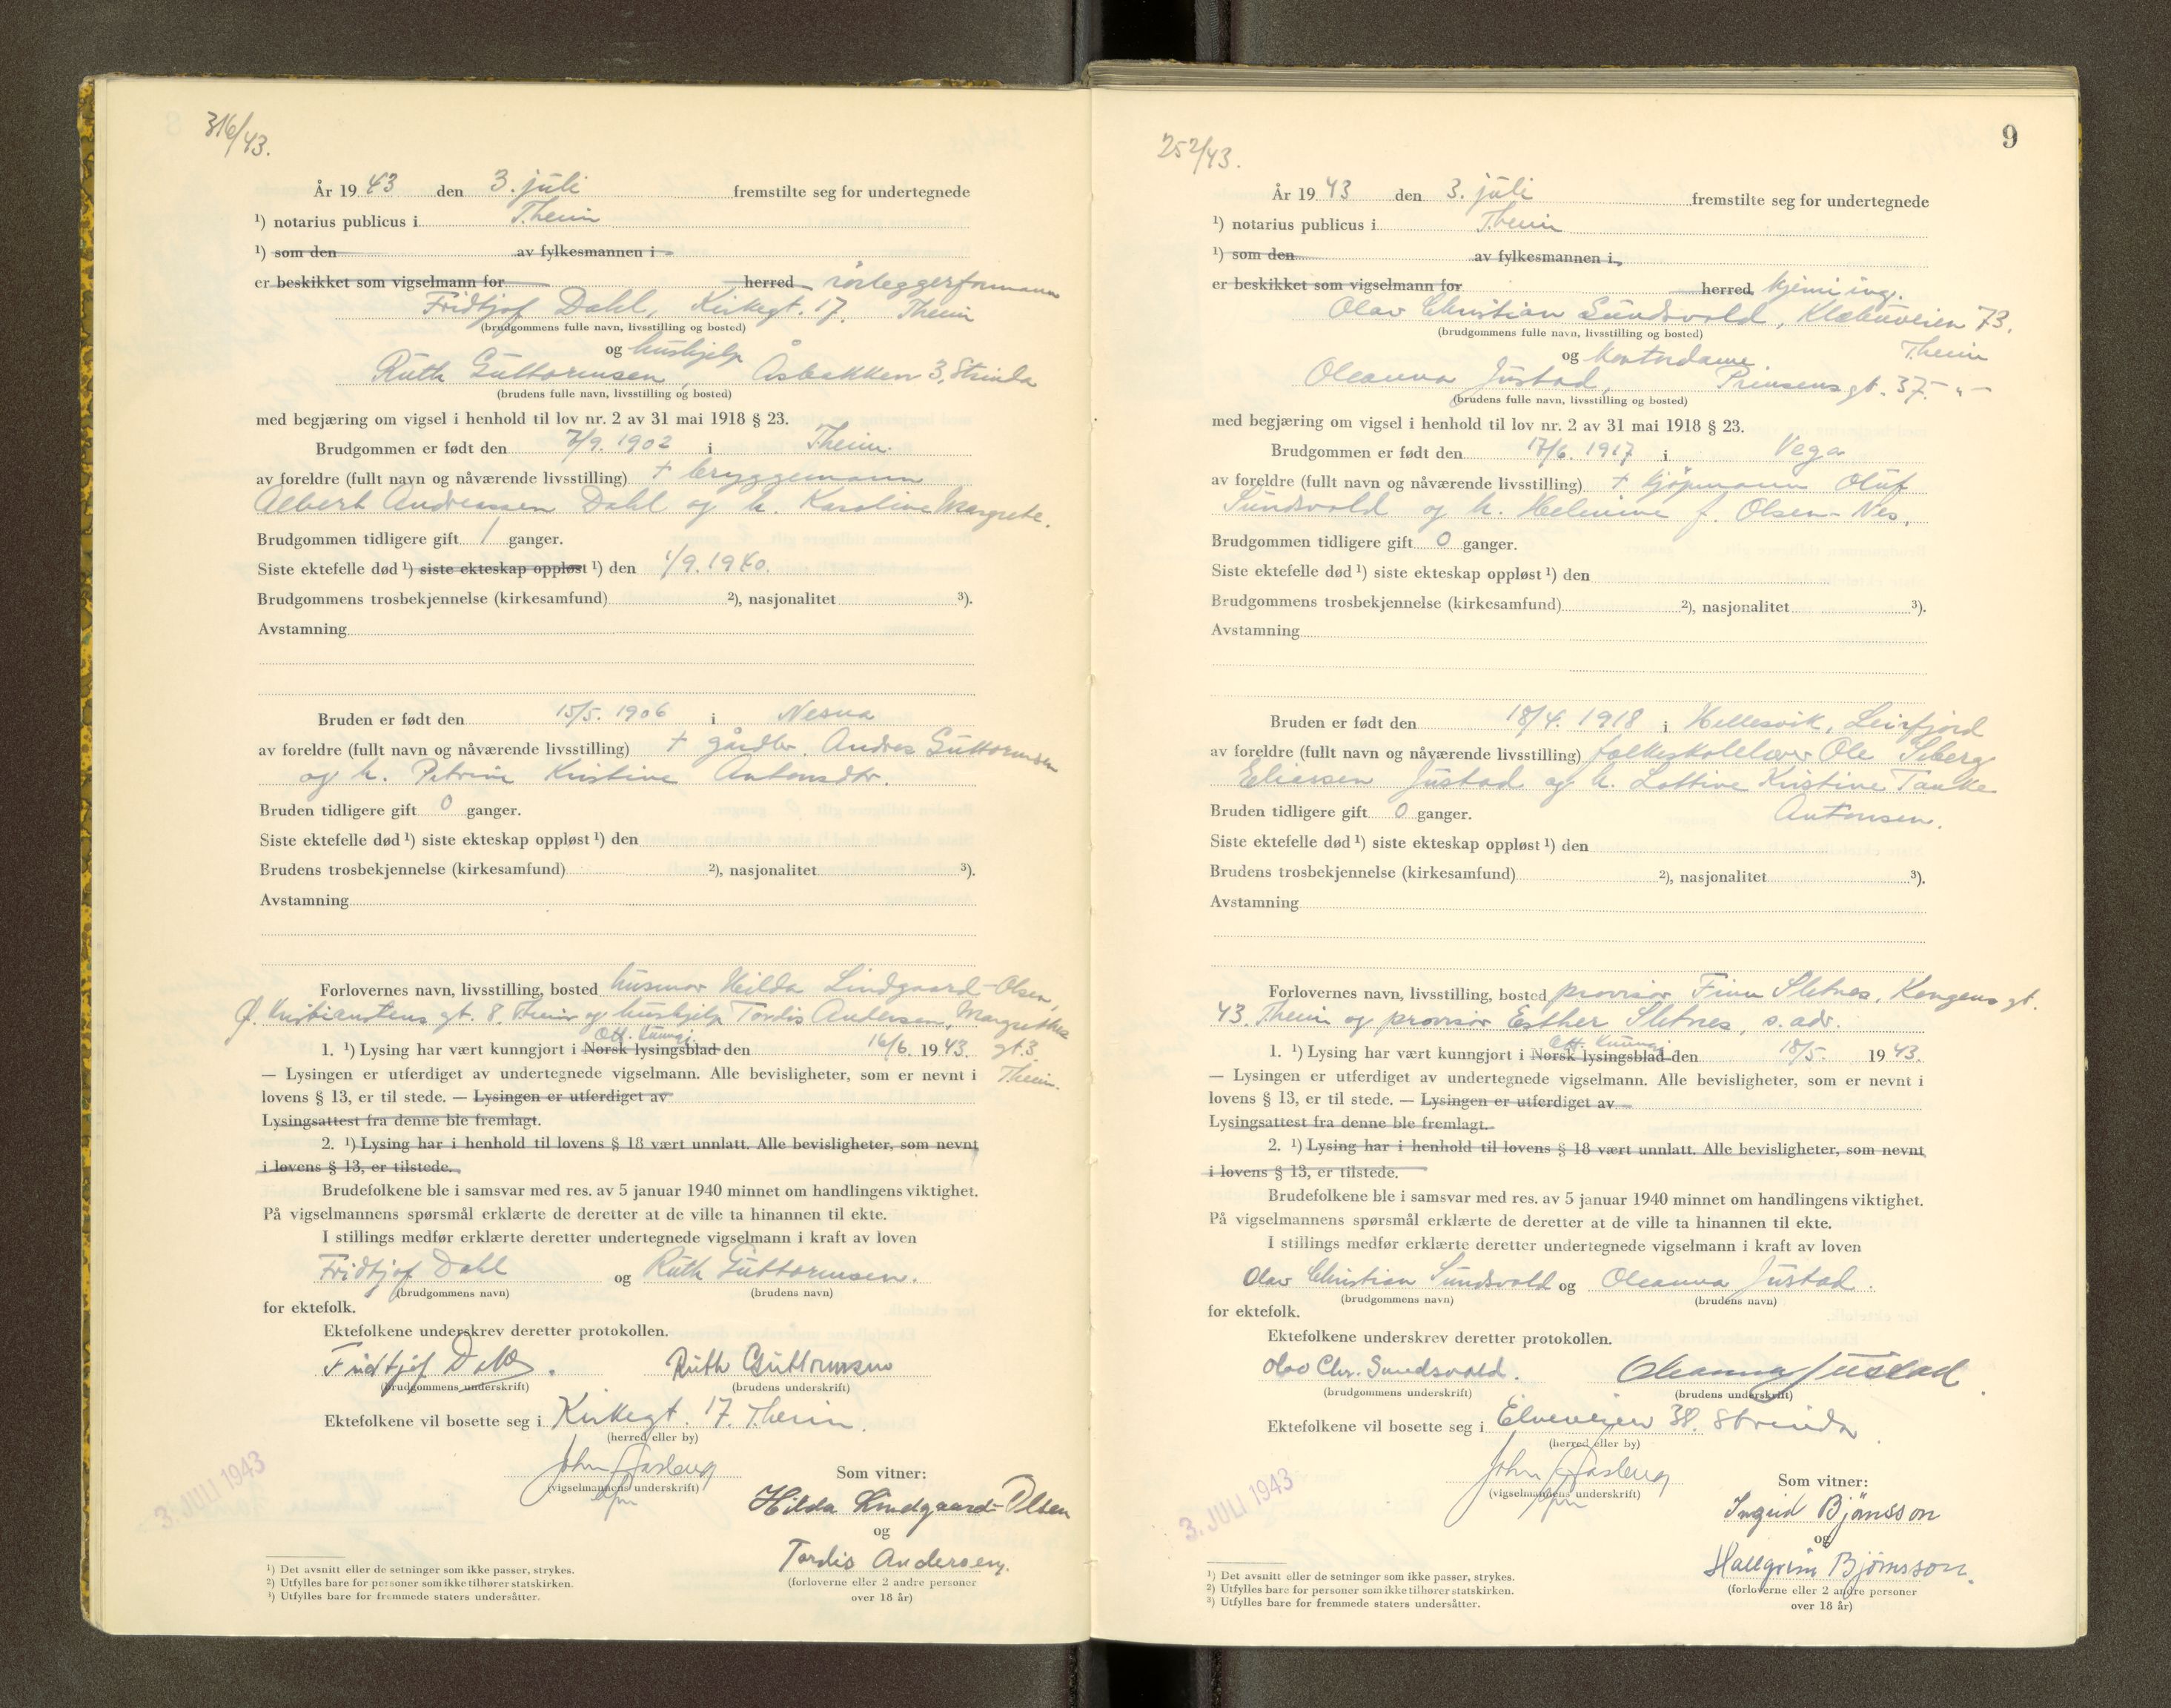 316/43.
År 19 43 den 3. juli fremstilte seg for undertegnede
¹) notarius publicus i Theim
¹) som den av fylkesmannen i
er beskikket som vigselmann for herred rørleggerformann
Fridtjof Dahl, Kirkegt. 17. Theim
(brudgommens fulle navn, livsstilling og bosted)
og hushjelp
Ruth Guttormsen, Åsbakken 3, Strinda
(brudens fulle navn, livsstilling og bosted)
med begjæring om vigsel i henhold til lov nr. 2 av 31 mai 1918 § 23.
Brudgommen er født den 7/9. 1902 i Theim.
av foreldre (fullt navn og nåværende livsstilling) + bryggemann
Albert Andreassen Dahl og h. Karoline Margrete.
Brudgommen tidligere gift 1 ganger.
Siste ektefelle død ¹) siste ekteskap oppløst ¹) den 1/9. 1940.
Brudgommens trosbekjennelse (kirkesamfund) ²), nasjonalitet ³).
Avstamning
Bruden er født den 15/5. 1906 i Nesna
av foreldre (fullt navn og nåværende livsstilling) + gårdbr. Andreas Guttormsen
og h. Petrine Kristine Antonsdtr.
Bruden tidligere gift 0 ganger.
Siste ektefelle død ¹) siste ekteskap oppløst ¹) den
Brudens trosbekjennelse (kirkesamfund) ²), nasjonalitet ³).
Avstamning
Forlovernes navn, livsstilling, bosted husmor Hilda Lindgaard-Olsen,
Ø. Kristianstens gt. 8. Theim og hushjelp Tordis Andersen, Margrethes
Off. kunngj.
1. ¹) Lysing har vært kunngjort i Norsk lysingsblad den 16/6. 19 43. gt. 3.
— Lysingen er utferdiget av undertegnede vigselmann. Alle bevisligheter, som er nevnt i Theim.
lovens § 13, er til stede. — Lysingen er utferdiget av
Lysingsattest fra denne ble fremlagt.
2. ¹) Lysing har i henhold til lovens § 18 vært unnlatt. Alle bevisligheter, som nevnt
i lovens § 13, er tilstede.
Brudefolkene ble i samsvar med res. av 5 januar 1940 minnet om handlingens viktighet.
På vigselmannens spørsmål erklærte de deretter at de ville ta hinannen til ekte.
I stillings medfør erklærte deretter undertegnede vigselmann i kraft av loven
Fridtjof Dahl og Ruth Guttormsen.
(brudgommens navn) (brudens navn)
for ektefolk.
Ektefolkene underskrev deretter protokollen.
Fridtjof Dahl. Ruth Guttormsen
(brudgommens underskrift) (brudens underskrift)
Ektefolkene vil bosette seg i Kirkegt. 17. Theim.
(herred eller by)
John Aasberg
(vigselmannens underskrift)
3. JULI 1943
Som vitner:
Hilda Lindgaard-Olsen
og
Tordis Andersen.
(forloverne eller 2 andre personer
over 18 år)
¹) Det avsnitt eller de setninger som ikke passer, strykes.
²) Utfylles bare for personer som ikke tilhører statskirken.
¹) Utfylles bare for fremmede staters undersåtter.
9
252/43.
År 19 43 den 3. juli fremstilte seg for undertegnede
¹) notarius publicus i Theim
¹) som den av fylkesmannen i
er beskikket som vigselmann for herred kjemi ing.
Olav Christian Sundsvold, Klæbuveien 73,
(brudgommens fulle navn, livsstilling og bosted)
og kontordame Theim
Oleanna Justad, Prinsens gt. 37. - " -
(brudens fulle navn, livsstilling og bosted)
med begjæring om vigsel i henhold til lov nr. 2 av 31 mai 1918 § 23.
Brudgommen er født den 17/6. 1917 i Vega
av foreldre (fullt navn og nåværende livsstilling) + kjøpmann Oluf
Sundsvold og h. Helmine f. Olsen-Nes.
Brudgommen tidligere gift 0 ganger.
Siste ektefelle død ¹) siste ekteskap oppløst ¹) den
Brudgommens trosbekjennelse (kirkesamfund) ²), nasjonalitet ³).
Avstamning
Bruden er født den 18/4. 1918 i Hellesvik, Leirfjord
av foreldre (fullt navn og nåværende livsstilling) folkeskolelærer Ole Seberg
Eliassen Justad og h. Lottine Kristine Tanke
Bruden tidligere gift 0 ganger. Antonsen.
Siste ektefelle død ¹) siste ekteskap oppløst ¹) den
Brudens trosbekjennelse (kirkesamfund) ²), nasjonalitet ³).
Avstamning
Forlovernes navn, livsstilling, bosted provisor Finn Sletnes, Kongens gt.
43. Theim og provisor Esther Sletnes, s. adr.
Off. kunngj.
1. ¹) Lysing har vært kunngjort i Norsk lysingsblad den 18/5. 19 43.
— Lysingen er utferdiget av undertegnede vigselmann. Alle bevisligheter, som er nevnt i
lovens § 13, er til stede. — Lysingen er utferdiget av
Lysingsattest fra denne ble fremlagt.
2. ¹) Lysing har i henhold til lovens § 18 vært unnlatt. Alle bevisligheter, som nevnt
i lovens § 13, er tilstede.
Brudefolkene ble i samsvar med res. av 5 januar 1940 minnet om handlingens viktighet.
På vigselmannens spørsmål erklærte de deretter at de ville ta hinannen til ekte.
I stillings medfør erklærte deretter undertegnede vigselmann i kraft av loven
Olav Christian Sundsvold og Oleanna Justad.
(brudgommens navn) (brudens navn)
for ektefolk.
Ektefolkene underskrev deretter protokollen.
Olav Chr. Sundsvold. Oleanna Justad.
(brudgommens underskrift) (brudens underskrift)
Ektefolkene vil bosette seg i Elveveien 38. Strinda
(herred eller by)
John Aasberg
(vigselmannens underskrift)
3. JULI 1943
Som vitner:
Ingrid Björnsson
og
Hallgrim Björnsson.
(forloverne eller 2 andre personer
over 18 år)
¹) Det avsnitt eller de setninger som ikke passer, strykes.
²) Utfylles bare for personer som ikke tilhører statskirken.
³) Utfylles bare for fremmede staters undersåtter.